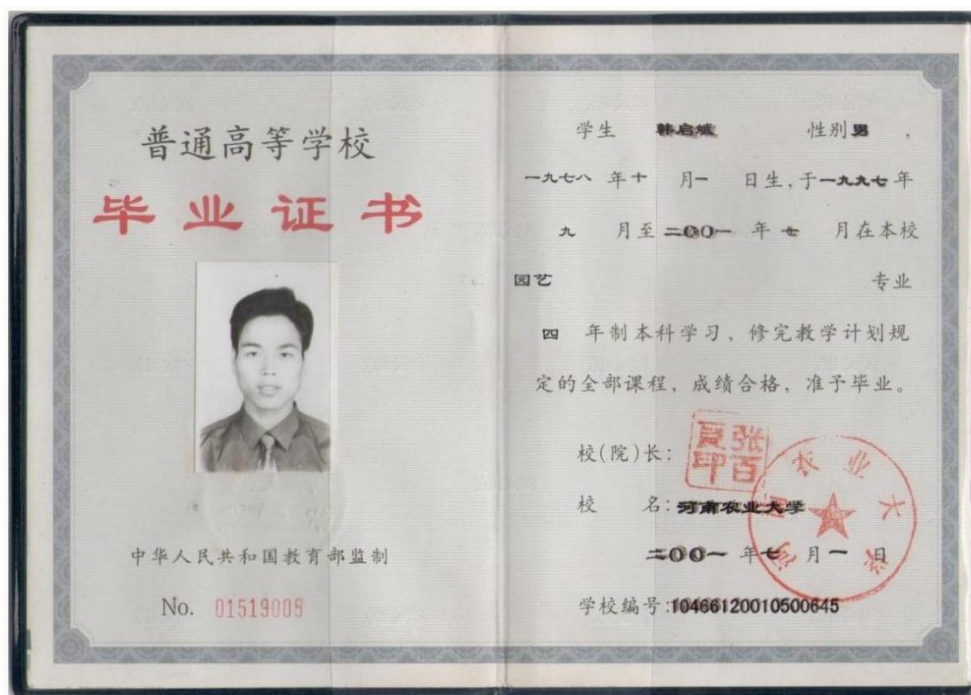 普通高等学校
毕业证书
中华人民共和国教育部监制
No. 01519009
学生 韩启斌 性别男,
一九七八 年十 月一 日生,于一九九七年
九 月至二00一 年七 月在本校
园艺 专业
四 年制本科学习,修完教学计划规
定的全部课程,成绩合格,准予毕业。
校(院)长:
张百良印
校 名:河南农业大学
河南农业大学
二00一 年七 月一日
学校编号:10466120010500645